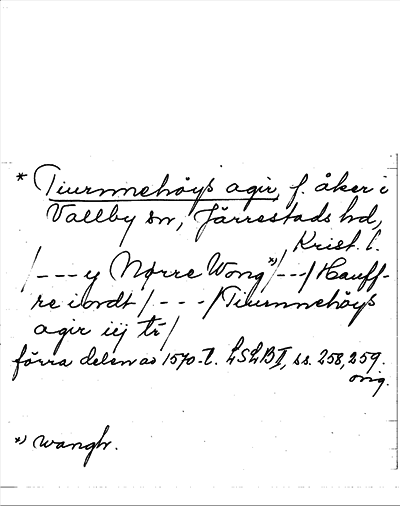 * Tiurnnehöys agir, f. åker i
Vallby sn, Järrestads hd,
Krist. l.
/--- y Nørre Wong *) /---/ Hauff-
re iordt /---/ Tiurnnehöys
agir iij tr /
förra delen av 1570-t. LSLB II, ss. 258, 259.
orig.
*) wangh.